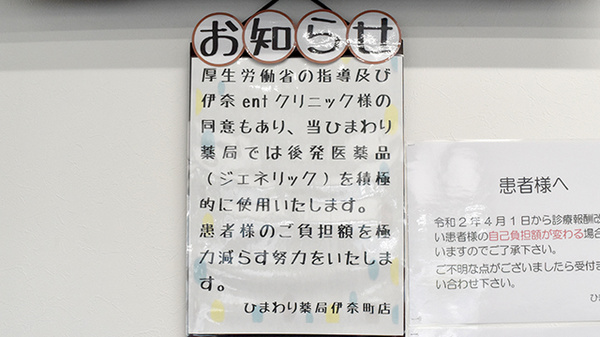 お知らせ
厚生労働省の指導及び
伊奈entクリニック様の
同意もあり、当ひまわり
薬局では後発医薬品
（ジェネリック）を積極
的に使用いたします。
患者様のご負担額を極
力減らす努力をいたしま
す。
ひまわり薬局伊奈町店
患者様へ
令和２年４月１日から診療報酬改
い患者様の自己負担額が変わる場合
いますのでご了承下さい。
ご不明な点がございましたら受付ま
い合わせ下さい。
ひま